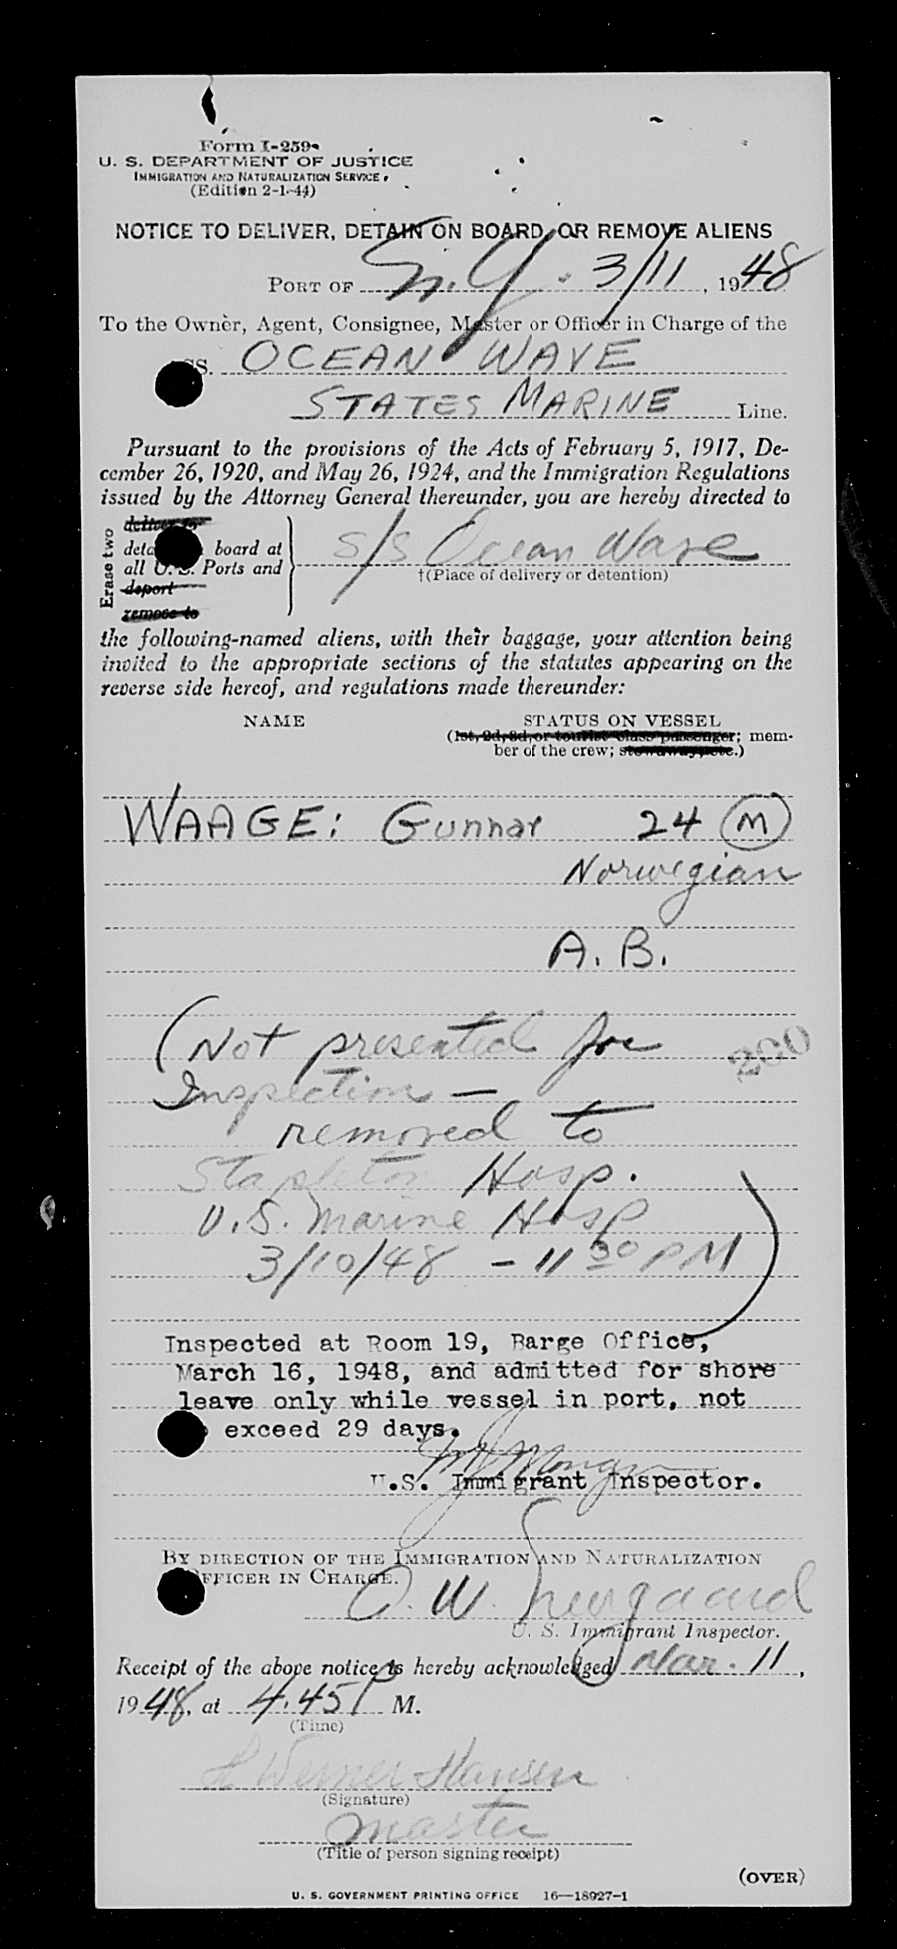 Form I-259
U. S. DEPARTMENT OF JUSTICE
IMMIGRATION AND NATURALIZATION SERVICE
(Edition 2-1-44)
NOTICE TO DELIVER, DETAIN ON BOARD, OR REMOVE ALIENS
PORT OF N.Y. 3/11, 1948
To the Owner, Agent, Consignee, Master or Officer in Charge of the
SS. OCEAN WAVE
STATES MARINE Line.
Pursuant to the provisions of the Acts of February 5, 1917, De-
cember 26, 1920, and May 26, 1924, and the Immigration Regulations
issued by the Attorney General thereunder, you are hereby directed to
Erase two
deliver to
board at
all U.S. Ports and
deport
remove to
S/S Ocean Wave
†(Place of delivery or detention)
the following-named aliens, with their baggage, your attention being
invited to the appropriate sections of the statutes appearing on the
reverse side hereof, and regulations made thereunder:
NAME STATUS ON VESSEL
(1st, 2d, 3d, or tourist class passenger; mem-
ber of the crew; stowaway, etc.)
WAAGE: Gunnar 24 (M)
Norwegian
A. B.
(Not presented for
200
Inspection —
removed to
Stapleton Hosp.
U.S. Marine Hosp
3/10/48 - 11 30 PM)
Inspected at Room 19, Barge Office,
March 16, 1948, and admitted for shore
leave only while vessel in port, not
exceed 29 days.
U.S. Immigrant Inspector.
BY DIRECTION OF THE IMMIGRATION AND NATURALIZATION
OFFICER IN CHARGE.
O. W.
U. S. Immigrant Inspector.
Receipt of the above notice is hereby acknowledged Mar. 11,
1948, at 4.45 P M.
(Time)
Werner Hansen
(Signature)
Master
(Title of person signing receipt)
(OVER)
U. S. GOVERNMENT PRINTING OFFICE 16—18927-1